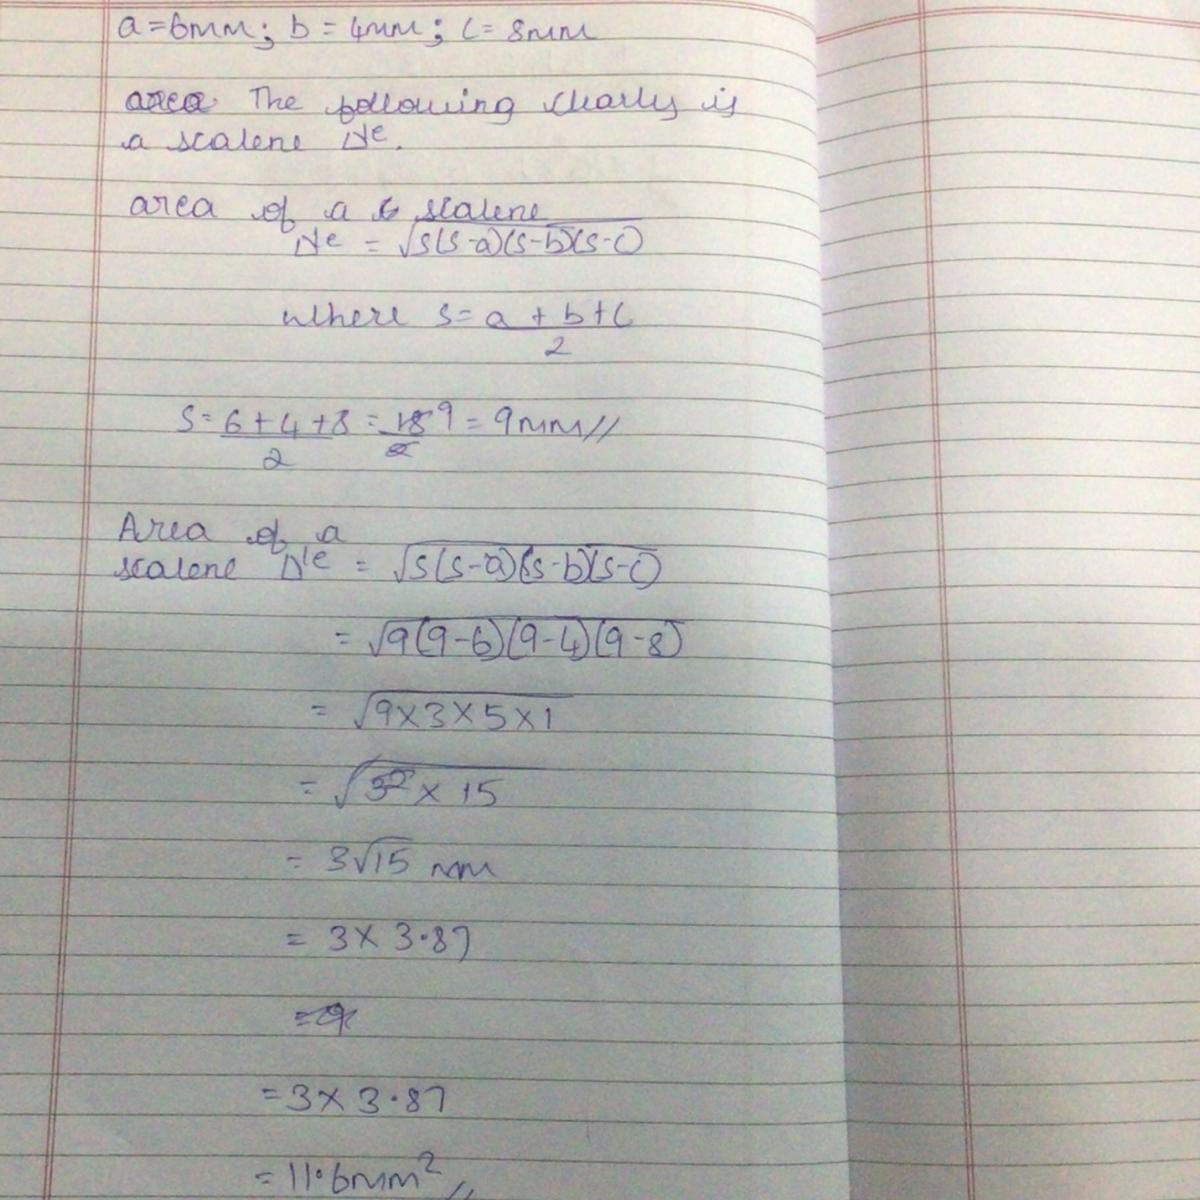 a=6mm; b=4mm; c=8mm
area The following clearly is
a scalene Δle.
area of a scalene
Δle = √s(s-a)(s-b)(s-c)
where s= a+b+c
2
S= 6+4+8 = 18 9 = 9mm//
2 2
Area of a
scalene Δle = √s(s-a)(s-b)(s-c)
= √9(9-6)(9-4)(9-8)
= √9×3×5×1
= √3²×15
= 3√15 mm
= 3×3.87
=3×3.87
=11.6mm²//